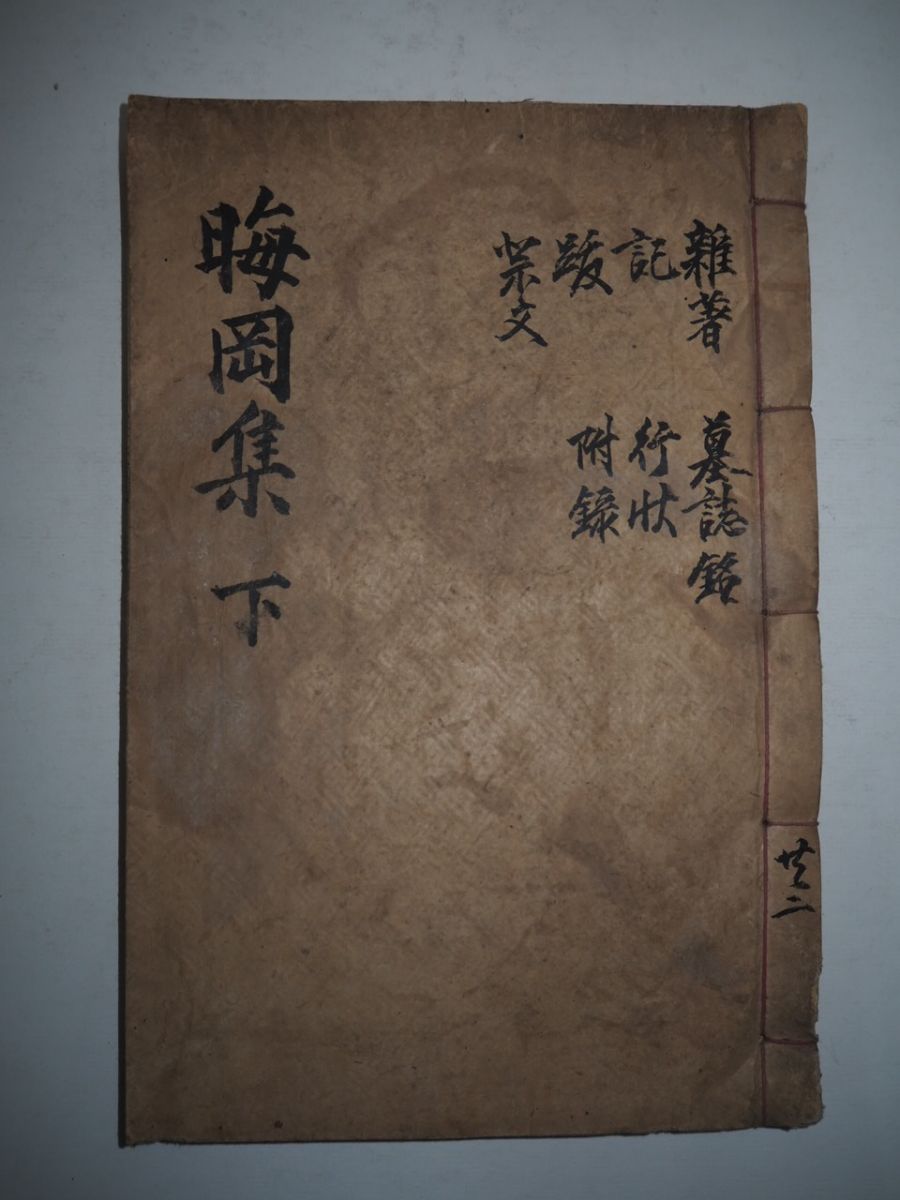 共二
雜著
記
跋
祭文
墓誌銘
行狀
附錄
晦岡集 下